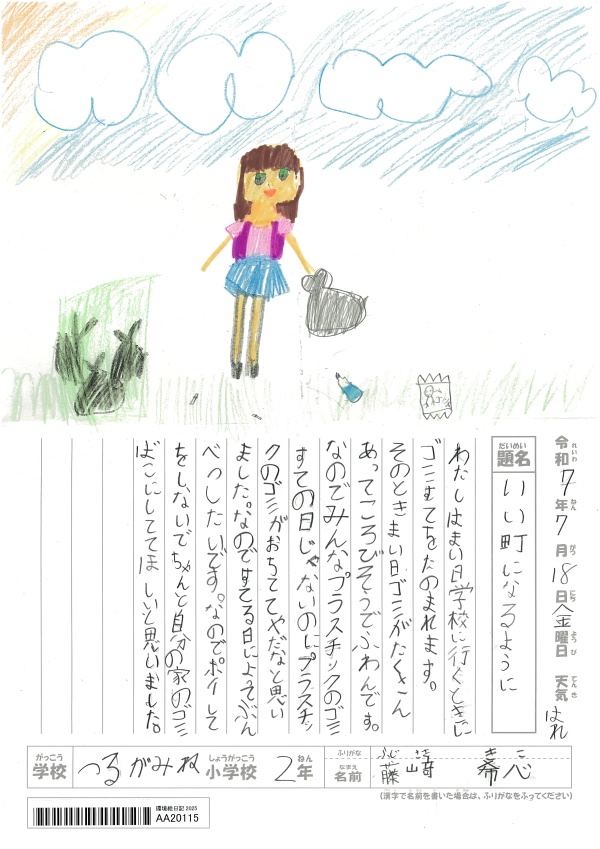 令和7年7月18日金曜日 天気 はれ
れいわ ねん がつ にち ようび てんき
だいめい
題名
いい町になるように
わたしはまい日学校に行くときに
ゴミすてをたのまれます。
そのときまい日ゴミがたくさん
あってころびそうでふわんです。
なのでみんなプラスチックのゴミ
すての日じゃないのにプラスチッ
クのゴミがおちててやだなと思い
ました。なのですてる日によってぶん
べつしたいです。なのでポイして
をしないでちゃんと自分の家のゴミ
ばこにしててほしいと思いました。
がっこう
学校
つるがみね
しょうがっこう
小学校
2年
ねん
ふりがな
なまえ
名前
ふじ さき き こ
藤﨑 希心
(漢字で名前を書いた場合は、ふりがなをふってください)
環境絵日記 2025
AA20115